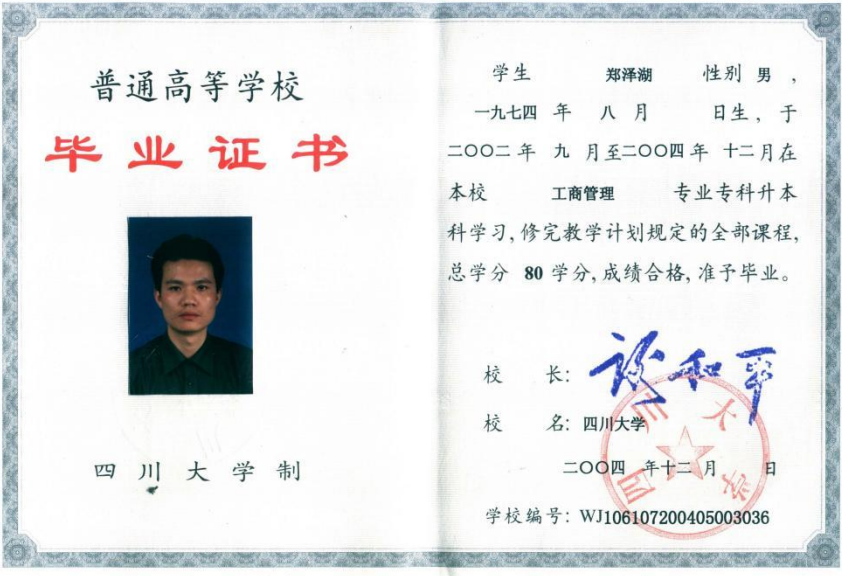 普通高等学校
毕业证书
四川大学制
学生 郑泽湖 性别 男,
一九七四 年 八 月 日生, 于
二〇〇二 年 九 月至二〇〇四年 十二月在
本校 工商管理 专业专科升本
科学习, 修完教学计划规定的全部课程,
总学分 80 学分, 成绩合格, 准予毕业。
校 长: 谢和平
校 名: 四川大学
二〇〇四 年十二月 日
四川大学
学校编号: WJ106107200405003036